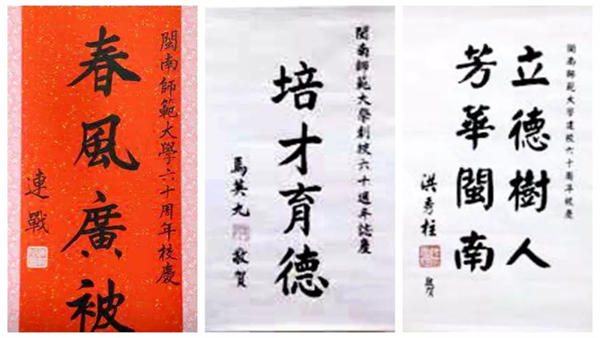 閩南師範大學六十周年校慶
春風廣被
連戰
閩南師範大學創校六十週年誌慶
培才育德
馬英九
敬賀
閩南師範大學建校六十周年校慶
立德樹人
芳華閩南
洪秀柱
敬賀